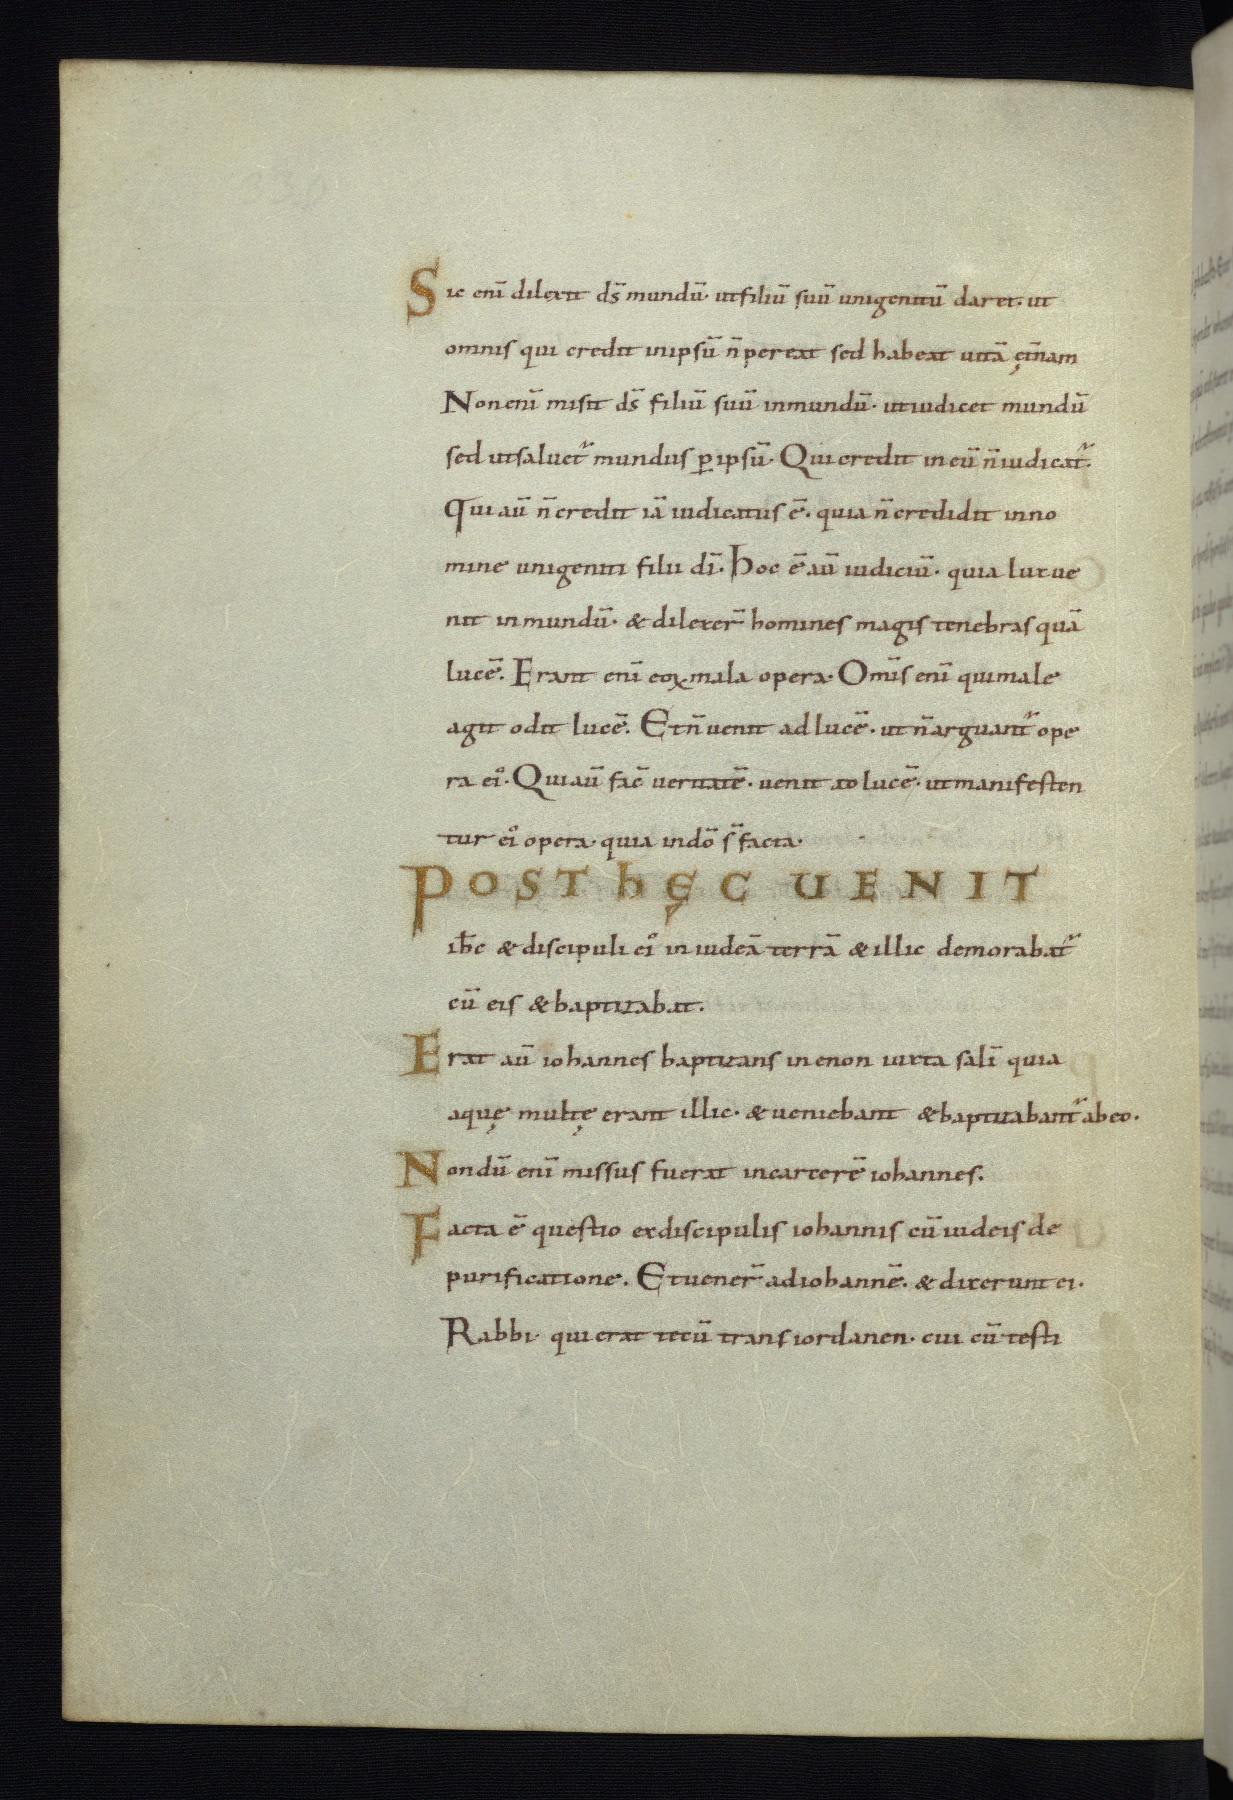 Sic enī dilexit ds̄ mundū· ut filiū suū unigenitū daret· ut
omnis qui credit in ipsū n̄ pereat sed habeat uitā ęt̄nam
Non enī misit ds̄ filiū suū in mundū· ut iudicet mundū
sed ut saluet᷑ mundus ꝑ ipsū· Qui credit in eū n̄ iudicat᷑·
Qui aū n̄ credit iā iudicatus ē· quia n̄ credidit in no
mine unigeniti filii dī· Hoc ē aū iudiciū· quia lux ue
nit in mundū· & dilexer̄ homines magis tenebras quā
lucē· Erant enī eoꝝ mala opera· Om̄is enī qui male
agit odit lucē· Et n̄ uenit ad lucē· ut n̄ arguant᷑ ope
ra ei᷒· Qui aū fac̄ ueritatē· uenit ad lucē· ut manifesten
tur ei᷒ opera· quia in dō s̄ facta·
POST HĘC UENIT
ih̄c & discipuli ei᷒ in iudeā terrā & illic demorabat᷑
cū eis & baptizabat·
Erat aū iohannes baptizans in enon iuxta salī quia
aquę multę erant illic· & ueniebant & baptizabant᷑ ab eo·
Nondū enī missus fuerat in carcerē iohannes·
Facta ē questio ex discipulis iohannis cū iudeis de
purificatione· Et uener̄ ad iohannē· & dixerunt ei·
Rabbi· qui erat tecū trans iordanen· cui cū testi